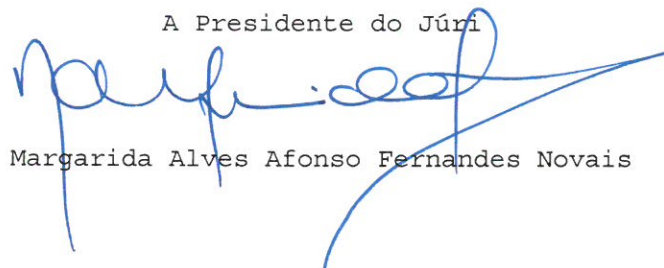 A Presidente do Júri
Margarida
Margarida Alves Afonso Fernandes Novais